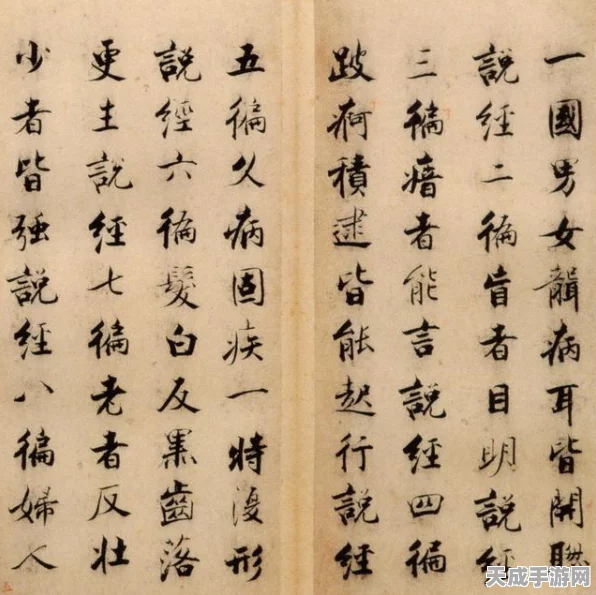 一國男女聾病耳皆開聰
說經二徧盲者目明說經
三徧瘖者能言說經四徧
跛痾積逮皆能起行說經
五徧久病固疾一時復形
說經六徧髮白反黑齒落
更生說經七徧老者反壯
少者皆強說經八徧婦人
五
天成手游网